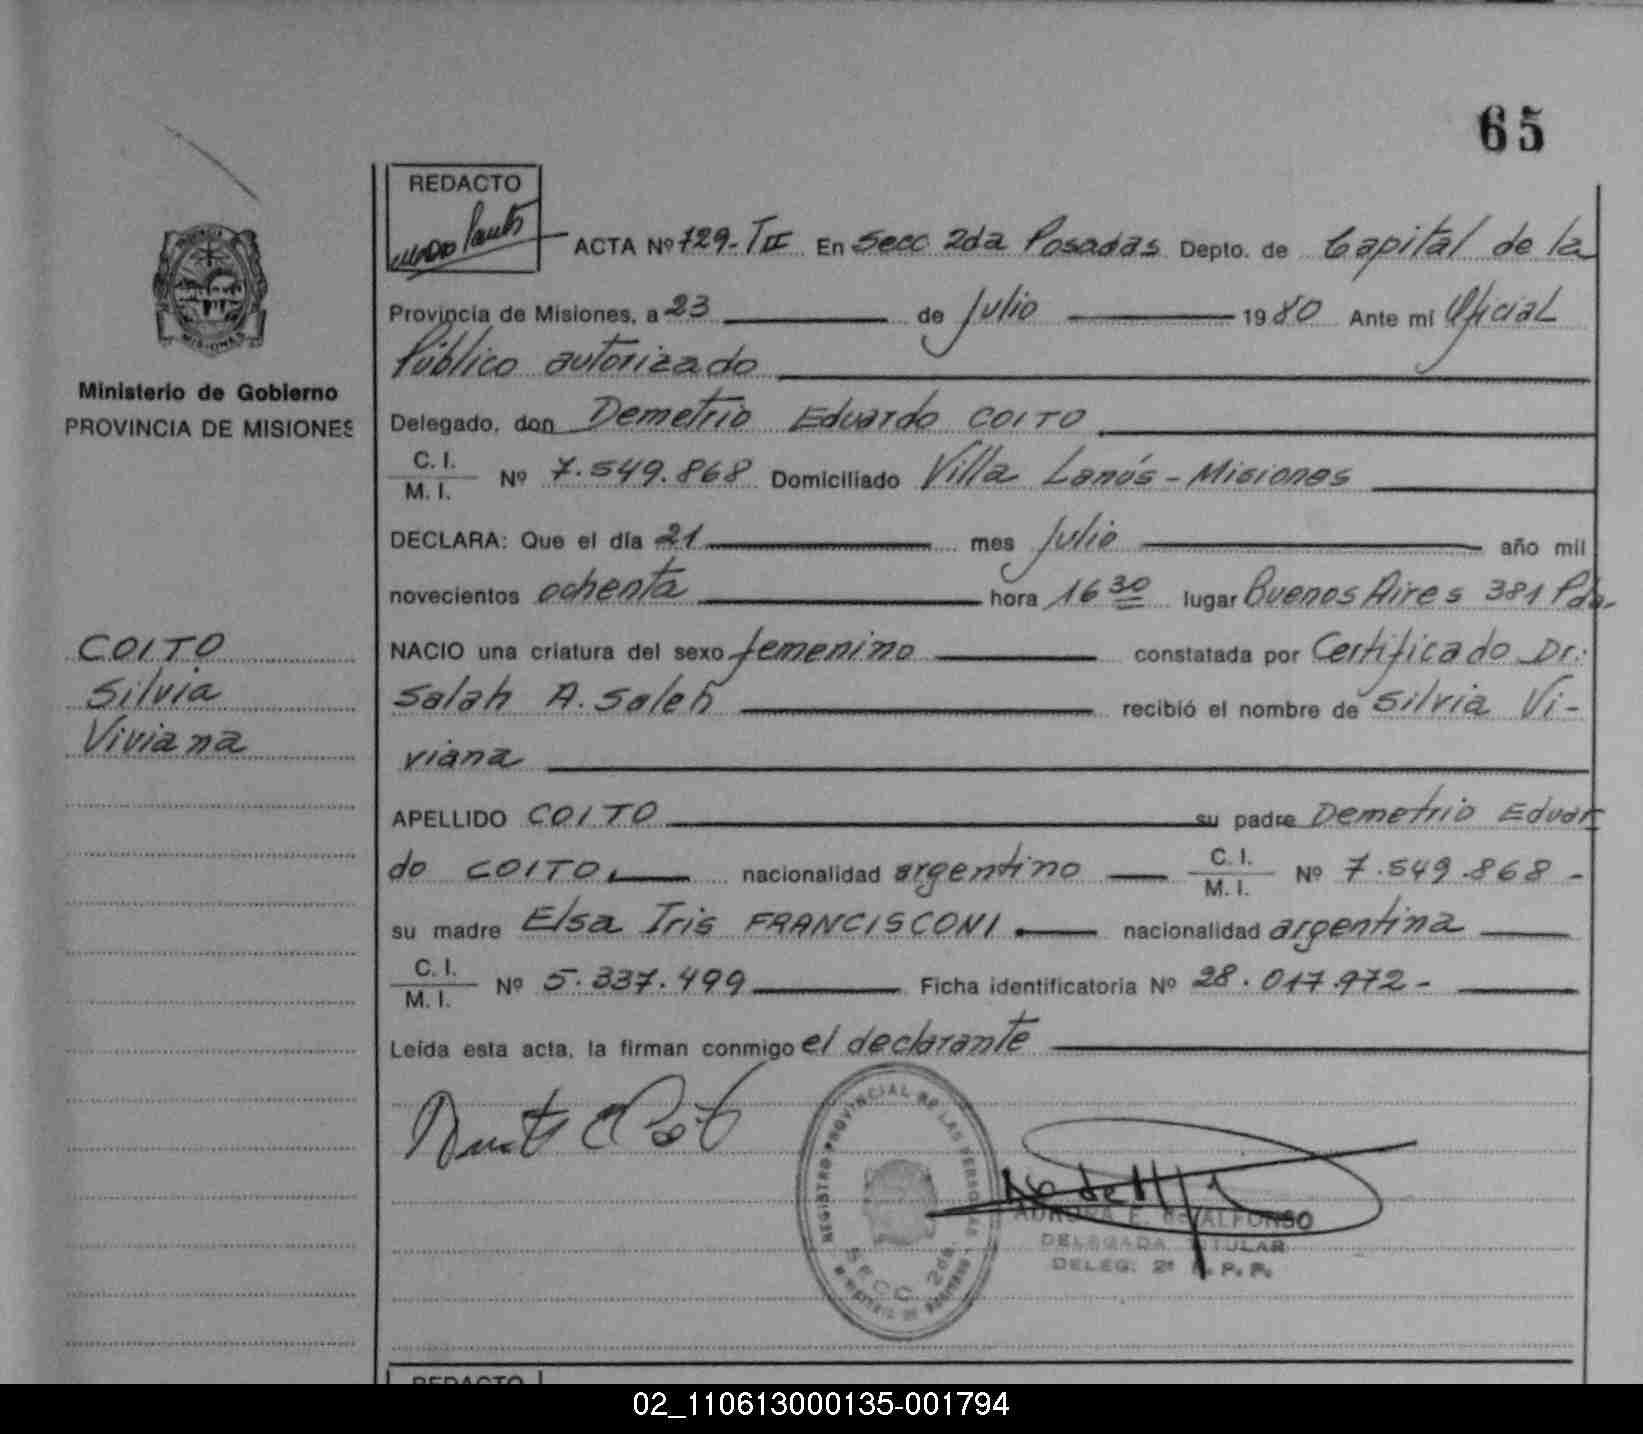 65
REDACTO
ACTA Nº 729-TII En Secc 2da Posadas Depto. de Capital de la
Provincia de Misiones, a 23 de Julio 1980 Ante mi Oficial
Público autorizado
Ministerio de Gobierno
PROVINCIA DE MISIONES
Delegado, don Demetrio Eduardo COITO
C. I.
M. I. Nº 7.549.868 Domiciliado Villa Lanús - Misiones
DECLARA: Que el día 21 mes Julio año mil
novecientos ochenta hora 16 30 lugar Buenos Aires 381 Pdas.
COITO
Silvia
Viviana
NACIO una criatura del sexo femenino constatada por Certificado Dr.:
Salah A. Saleh recibió el nombre de Silvia Vi-
viana
APELLIDO COITO su padre Demetrio Eduar
do COITO nacionalidad argentino C. I.
M. I. Nº 7.549.868 -
su madre Elsa Iris FRANCISCONI nacionalidad argentina
C. I.
M. I. Nº 5.337.499 Ficha identificatoria Nº 28.017.972 -
Leída esta acta, la firman conmigo el declarante
REGISTRO PROVINCIAL DE LAS PERSONAS
SECC 2da.
AURORA E. de ALFONSO
DELEGADA TITULAR
DELEG. 2ª R. P. P.
REDACTO
02_110613000135-001794